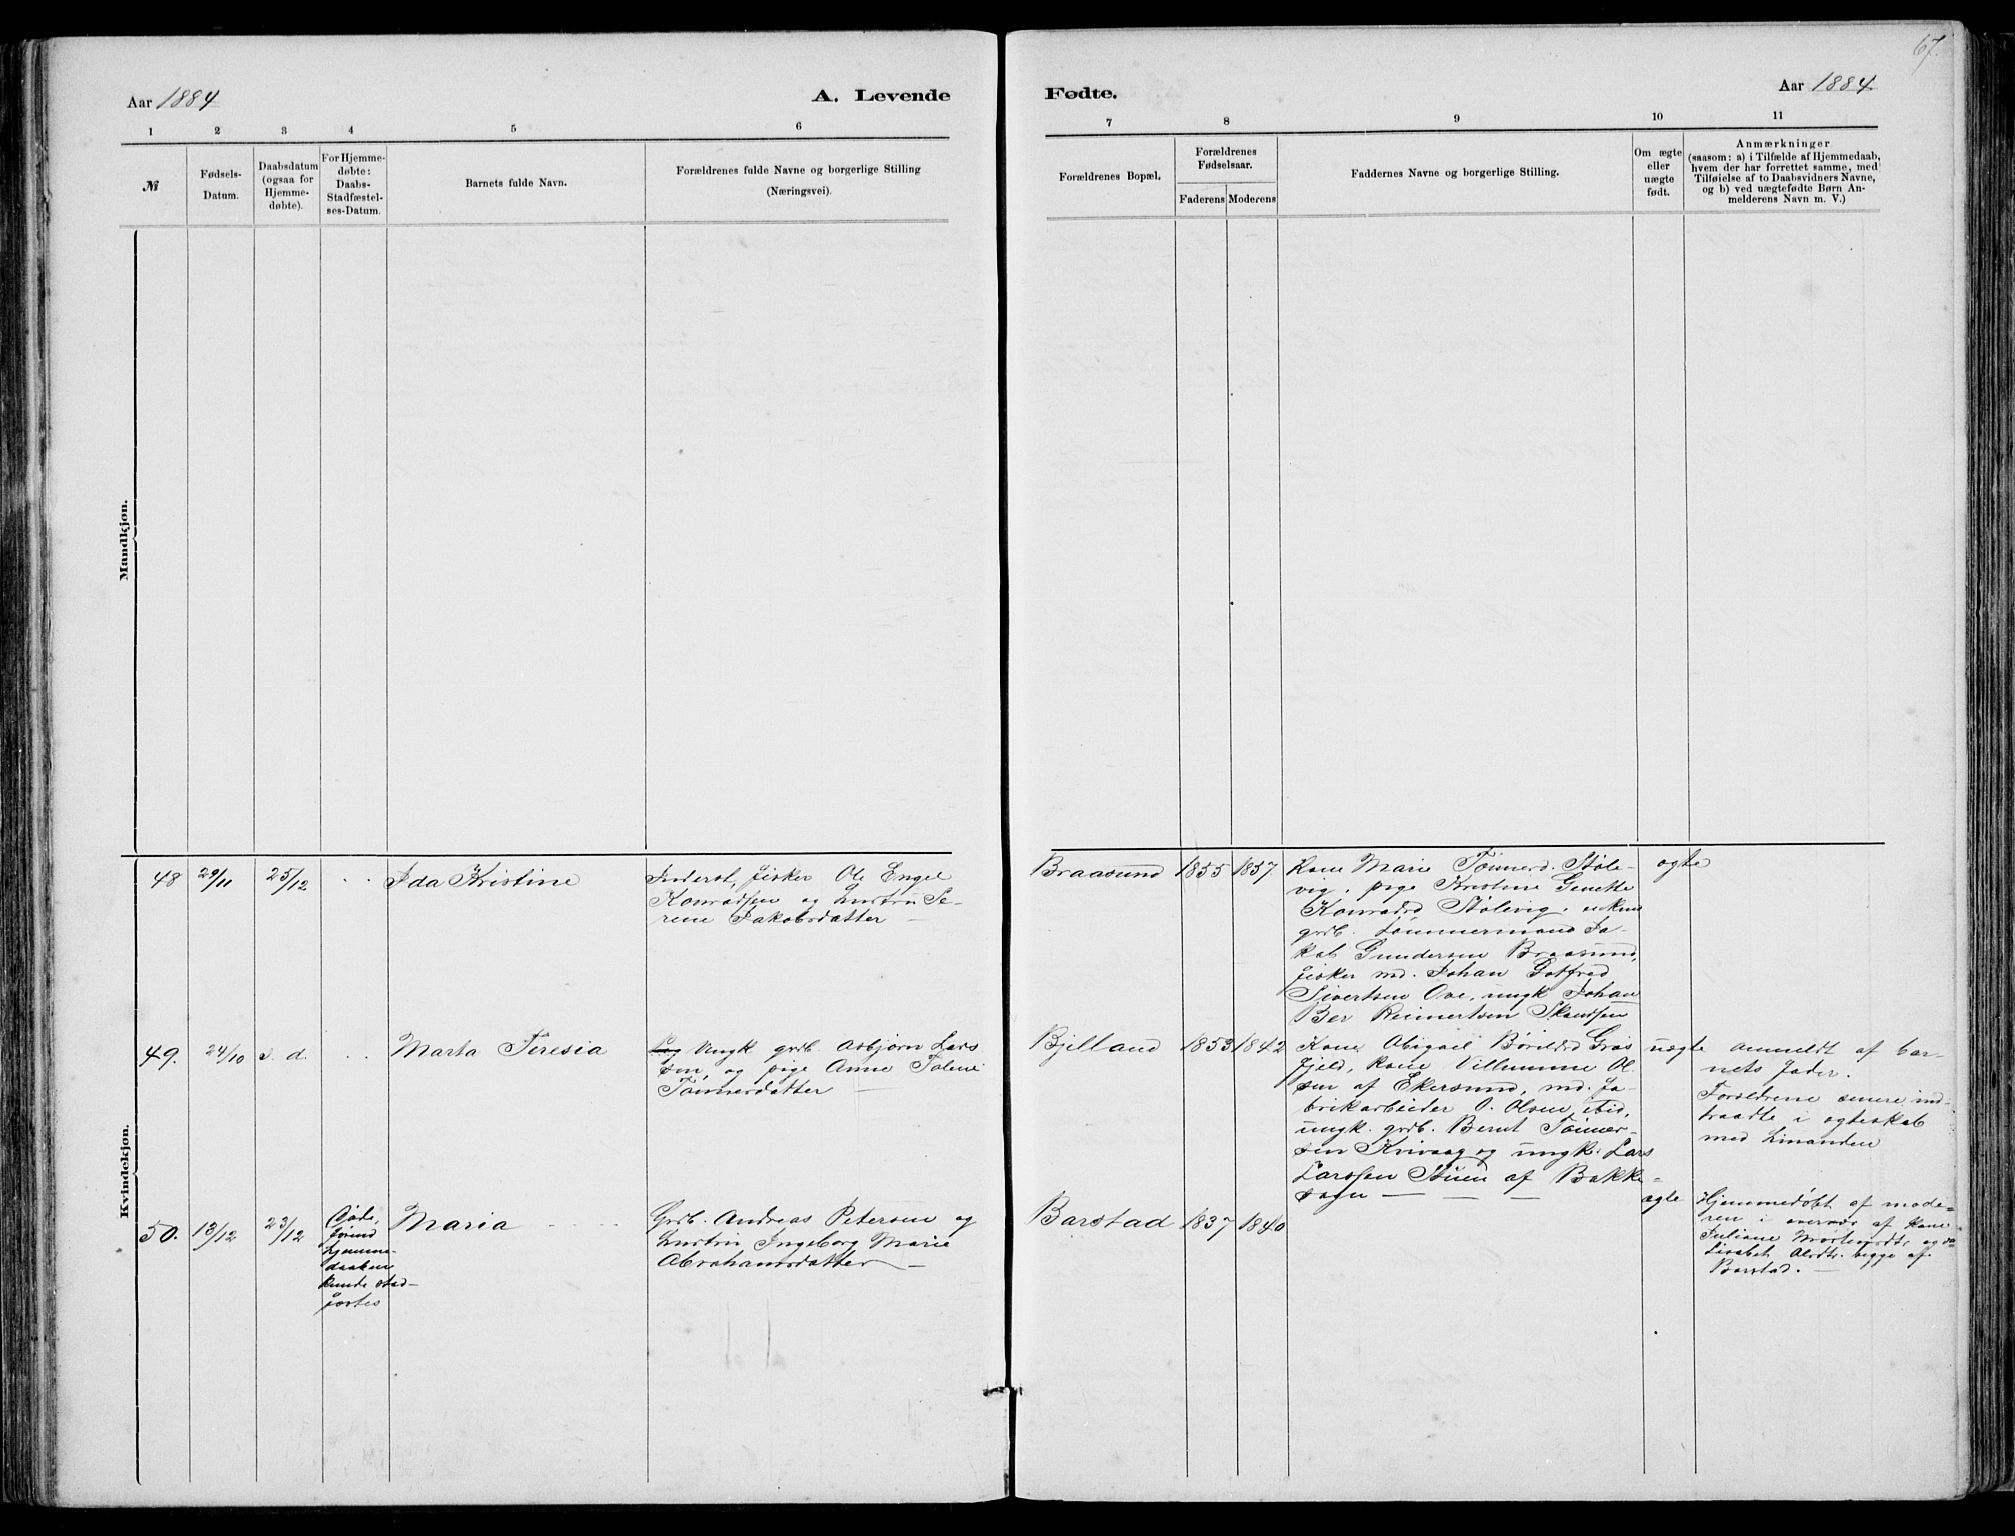 67.
Aar 1884
A. Levende
Fødte.
Aar 1884.
1
2
3
4
5
6
7
8
9
10
11
№
Fødsels-
Datum.
Daabsdatum
(ogsaa for
Hjemme-
døbte).
For Hjemme-
døbte:
Daabs-
Stadfæstel-
ses-Datum.
Barnets fulde Navn.
Forældrenes fulde Navne og borgerlige Stilling
(Næringsvei).
Forældrenes Bopæl.
Forældrenes
Fødselsaar.
Faderens
Moderens
Faddernes Navne og borgerlige Stilling.
Om ægte
eller
uægte
født.
Anmærkninger
(saasom: a) i Tilfælde af Hjemmedaab,
hvem der har forrettet samme, med
Tilføielse af to Daabsvidners Navne,
og b) ved uægtefødte Børn An-
melderens Navn m. V.)
Mandkjøn.
Kvindekjøn.
48
29/11
25/12
Ida Kristine
Inderst, fisker Ole Engel
Konradsen og hustru Se-
rene Jakobsdatter —
Braasund
1855
1857
Kone Marie Tönnerd. Støle-
vig, pige Kristine Genette
Konradsd Stølevig, enkem
grdb. tømmermand Ja-
kob Gundersen Braasund,
fisker md. Johan Gotfred
Sivertsen Ove, ungk Johan
Ber Reimertsen Skandsen
ægte
49.
24/10
s. d.
Marta Teresia
Ungk grdb. Asbjørn Lars
sen, og pige Anne Tolene
Tönnersdatter —
Bjelland
1853
1842
Kone Abigael Børildsd Gras
fjeld, kone Villumine Ol-
sen af Ekersund, md. fa-
brikarbeider O. Olsen ibid,
ungk. grdb. Bernt Tönner-
sen Kvivaag og ungk. Lars
Larssen Stuen af Bakke-
sogn — — —
uægte
anmeldt af bar-
nets fader.
Forældrene senere ind-
traadte i ægteskab
med hinanden
50.
13/12
23/12
Døde,
førend
hjemme-
daaben
kunde stad-
festes
Maria
Grdb. Andreas Petersen og
hustru Ingeborg Marie
Abrahamsdatter —
Barstad
1837
1840
ægte
Hjemmedøbt af mode-
ren i overvær af kone
Juliane
Lisabet Olsdtr. begge af
Barstad. —